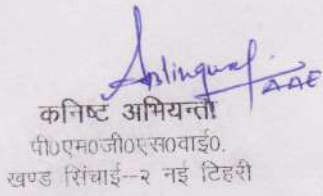 AAE
कनिष्ट अभियन्ता
पी०एम०जी०एस०वाई०.
खण्ड सिंचाई--२ नई टिहरी